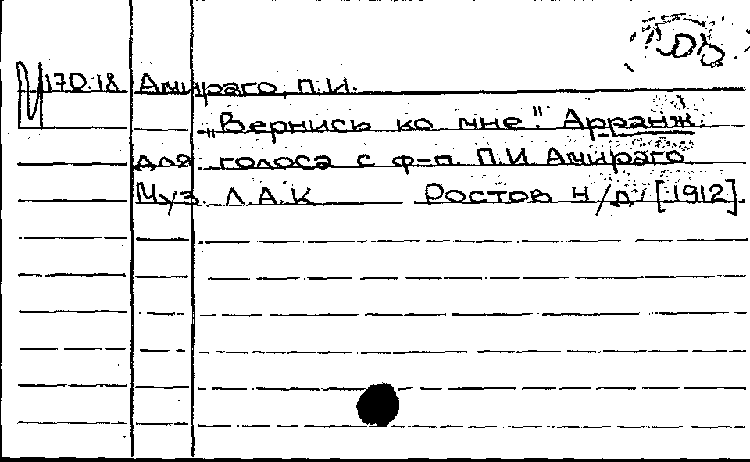 170.18 Амираго, П.И.
„Вернись ко мне." Арранж.
для голоса с ф-п. П.И. Амираго
Муз. Л.А.К Ростов н/д, [1912].